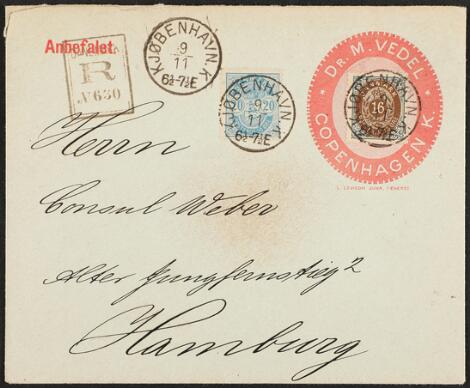 Anbefalet.
R
No 630
KJØBENHAVN.K.
9
11
6½-7½E
20 20
KJØBENHAVN.K.
9
11
6½-7½E
DR. M. VEDEL
COPENHAGEN K.
KJØBENHAVN.
16
L. LEVISON JUNR. F.ENEKE
Herrn
Consul Weber
Alter Jungfernstieg 2
Hamburg